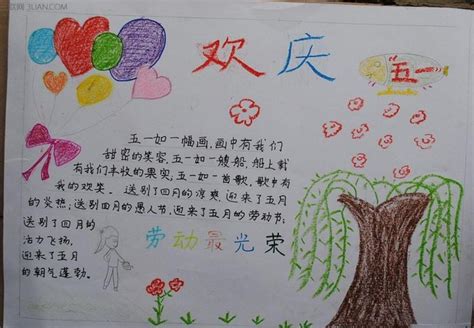 欢庆
五一
五一如一幅画,画中有我们
甜密的笑容,五一如一艘船,船上载
有我们丰收的果实,五一如一首歌,歌中有
我的欢笑。送别了四月的凉爽,迎来了五月
的炎热;送别四月的愚人节,迎来了五月的劳动节;
送别了四月的
活力飞扬,
迎来了五月
的朝气蓬勃。
劳动最光荣
3LIAN.COM